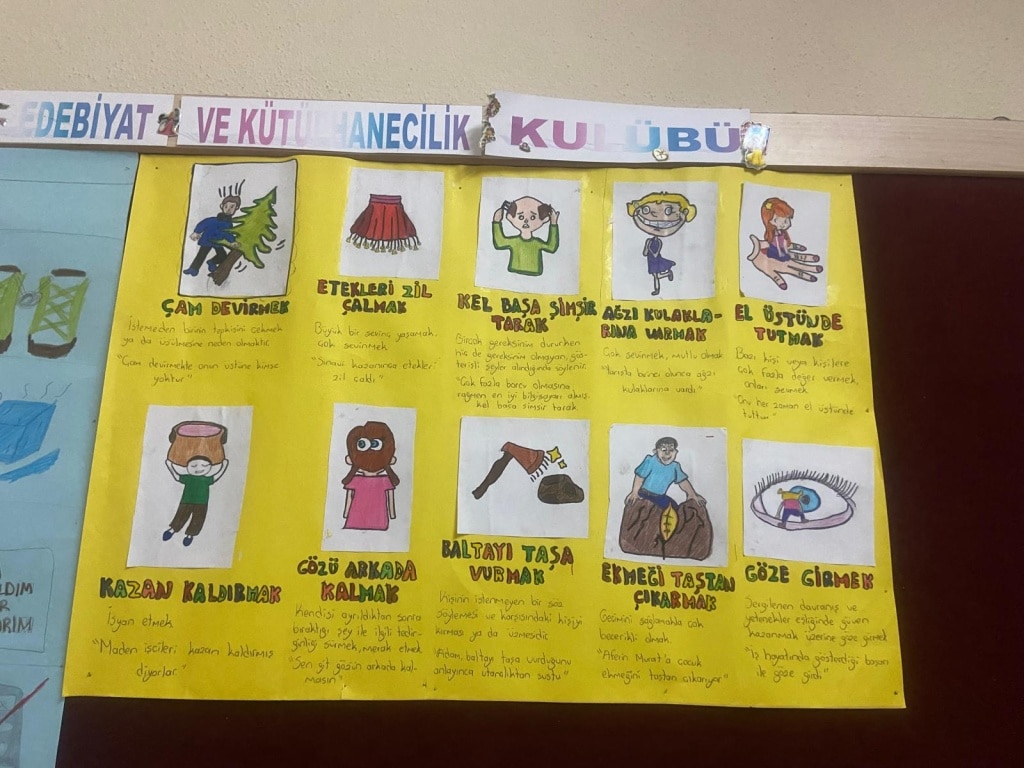 EDEBİYAT VE KÜTÜPHANECİLİK KULÜBÜ
ÇAM DEVİRMEK
İstemeden birinin tepkisini çekmek
ya da üzülmesine neden olmaktır.
"Çam devirmekte onun üstüne kimse
yoktur"
ETEKLERİ ZİL
ÇALMAK
Büyük bir sevinç yaşamak.
çok sevinmek
"Sınavı kazanınca etekleri
zil çaldı"
KEL BAŞA ŞİMŞİR
TARAK
Birçok gereksinim dururken
hiç de gereksinim olmayan, gös-
terişli şeyler alındığında söylenir.
"Çok fazla borcu olmasına
rağmen en iyi bilgisayarı almış.
kel başa şimşir tarak
AĞZI KULAKLA-
RINA VARMAK
Çok sevinmek, mutlu olmak
"Yarışta birinci olunca ağzı
kulaklarına vardı"
EL ÜSTÜNDE
TUTMAK
Bazı kişi veya kişilere
çok fazla değer vermek,
onları sevmek
"Onu her zaman el üstünde
tuttum"
KAZAN KALDIRMAK
İsyan etmek
"Maden işçileri kazan kaldırmış
diyorlar."
GÖZÜ ARKADA
KALMAK
Kendisi ayrıldıktan sonra
bıraktığı şey ile ilgili tedir-
ginliği sürmek, merak etmek
"Sen git gözün arkada kal-
masın"
BALTAYI TAŞA
VURMAK
Kişinin istenmeyen bir söz
söylemesi ve karşısındaki kişiyi
kırması ya da üzmesidir
"Adam, baltayı taşa vurduğunu
anlayınca utançlıktan sustu"
EKMEĞİ TAŞTAN
ÇIKARMAK
Geçimini sağlamakta çok
becerikli olmak.
"Aferin Murat'a çocuk
ekmeğini taştan çıkarıyor"
GÖZE GİRMEK
Sergilenen davranış ve
yetenekler eşliğinde güven
kazanmak üzerine göze girmek
"İş hayatında gösterdiği başarı
ile göze girdi"
LDIM
R
ARIM